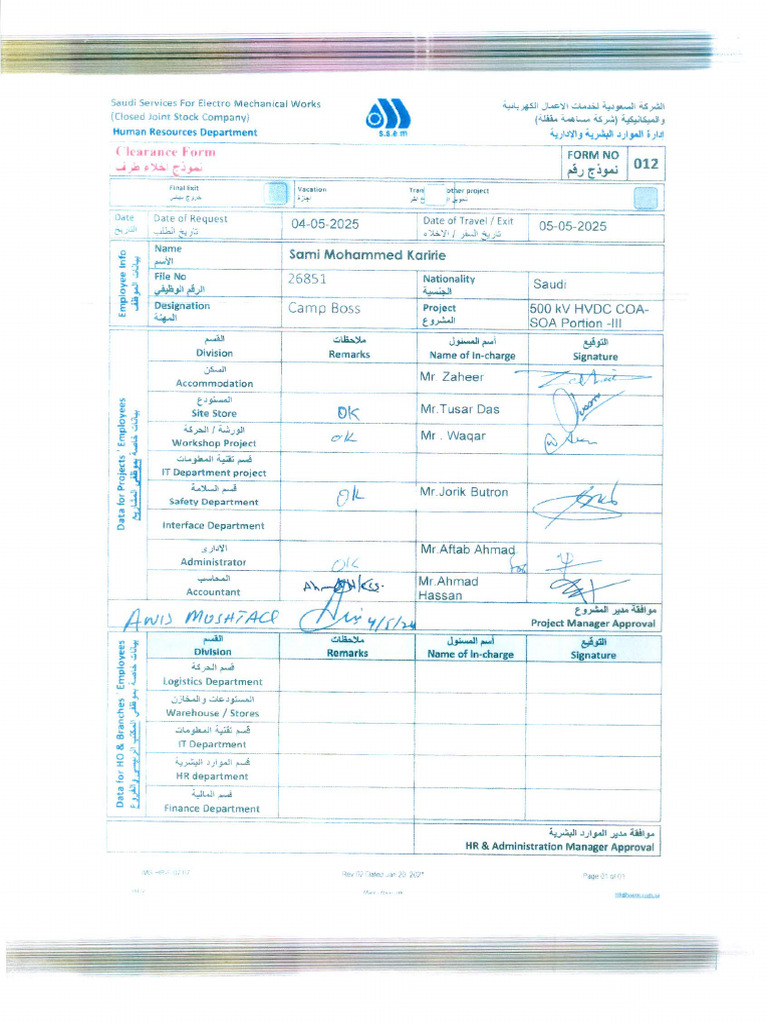 Saudi Services For Electro Mechanical Works
(Closed Joint Stock Company)
Human Resources Department
s.s.e.m
الشركة السعودية لخدمات الاعمال الكهربائية
والميكانيكية (شركة مساهمة مقفلة)
ادارة الموارد البشرية والادارية
Clearance Form
نموذج اخلاء طرف
FORM NO
نموذج رقم
012
Final Exit
Vacation
اجازة
other project
Date
التاريخ
Date of Request
تاريخ الطلب
04-05-2025
Date of Travel / Exit
تاريخ السفر / الاخلاء
05-05-2025
Employee Info
بيانات الموظف
Name
الأسم
Sami Mohammed Karirie
File No
الرقم الوظيفي
26851
Nationality
الجنسية
Saudi
Designation
المهنة
Camp Boss
Project
المشروع
500 kV HVDC COA-
SOA Portion -III
Data for Projects ' Employees
بيانات خاصة بموظفي المشاريع
القسم
Division
ملاحظات
Remarks
أسم المسئول
Name of In-charge
التوقيع
Signature
السكن
Accommodation
Mr. Zaheer
المستودع
Site Store
OK
Mr.Tusar Das
الورشة / الحركة
Workshop Project
OK
Mr . Waqar
قسم تقنية المعلومات
IT Department project
قسم السلامة
Safety Department
OK
Mr.Jorik Butron
Interface Department
الاداري
Administrator
OK
Mr.Aftab Ahmad
for
المحاسب
Accountant
Mr.Ahmad
Hassan
AWIS MUSHTAQ
4/5/24
موافقة مدير المشروع
Project Manager Approval
Data for HO & Branches ' Employees
بيانات خاصة بموظفي المكتب الرئيسي والفروع
القسم
Division
ملاحظات
Remarks
أسم المسئول
Name of In-charge
التوقيع
Signature
قسم الحركة
Logistics Department
المستودعات والمخازن
Warehouse / Stores
قسم تقنية المعلومات
IT Department
قسم الموارد البشرية
HR department
قسم المالية
Finance Department
موافقة مدير الموارد البشرية
HR & Administration Manager Approval
Page 01 of 01